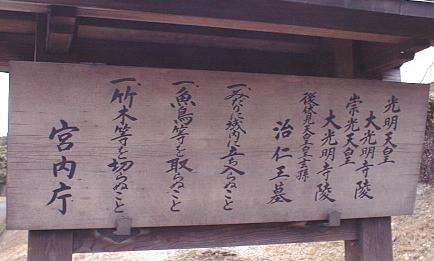 光明天皇
大光明寺陵
崇光天皇
大光明寺陵
後伏見天皇玄孫
治仁王墓
一、みだりに域内に立ち入らぬこと
一、魚鳥等を取らぬこと
一、竹木等を切らぬこと
宮内庁